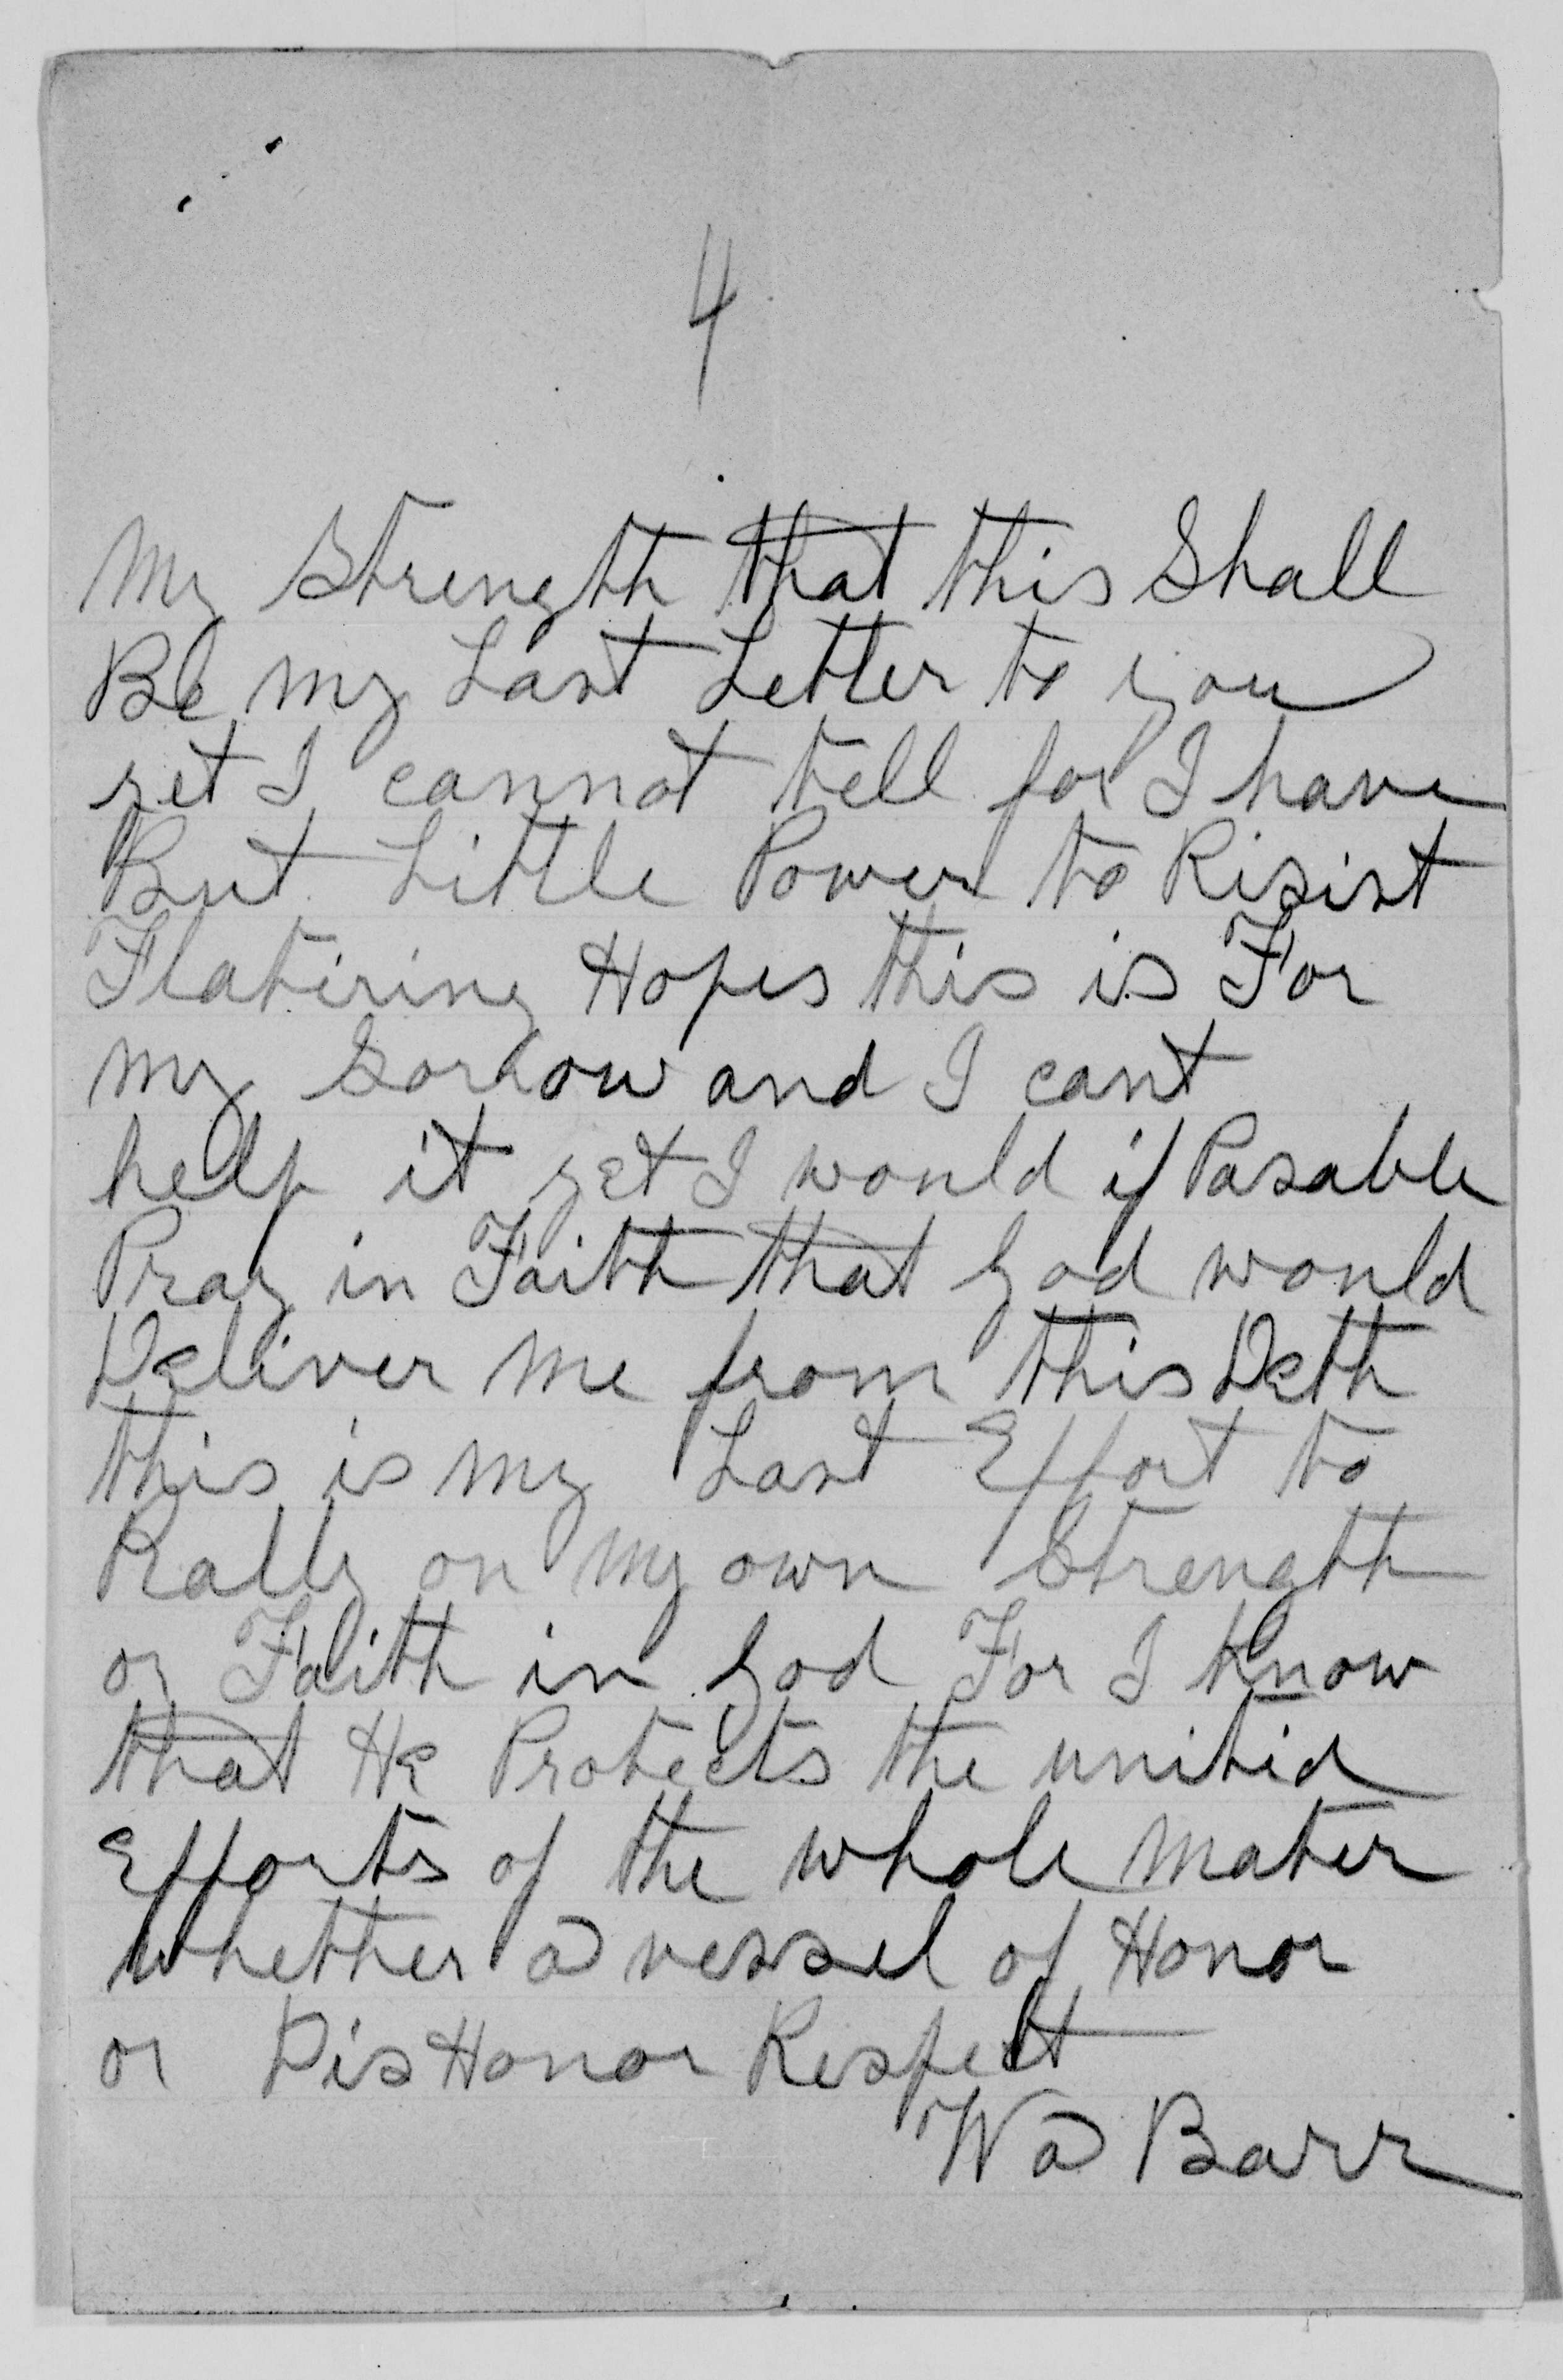 4
My Strength that this Shall
Be my Last Letter to you
yet I cannot tell for I have
But Little Power to Risist
Flatiring Hopes this is For
my Sorrow and I cant
help it yet I would if Posable
Pray in Faith that God would
Deliver me from this Deth
this is my Last Effort to
Rally on my own Strength
or Faith in God For I Know
that He Protects the unitid
Efforts of the whole mater
whether a vessel of Honor
or DisHonor Respect
W a Barr